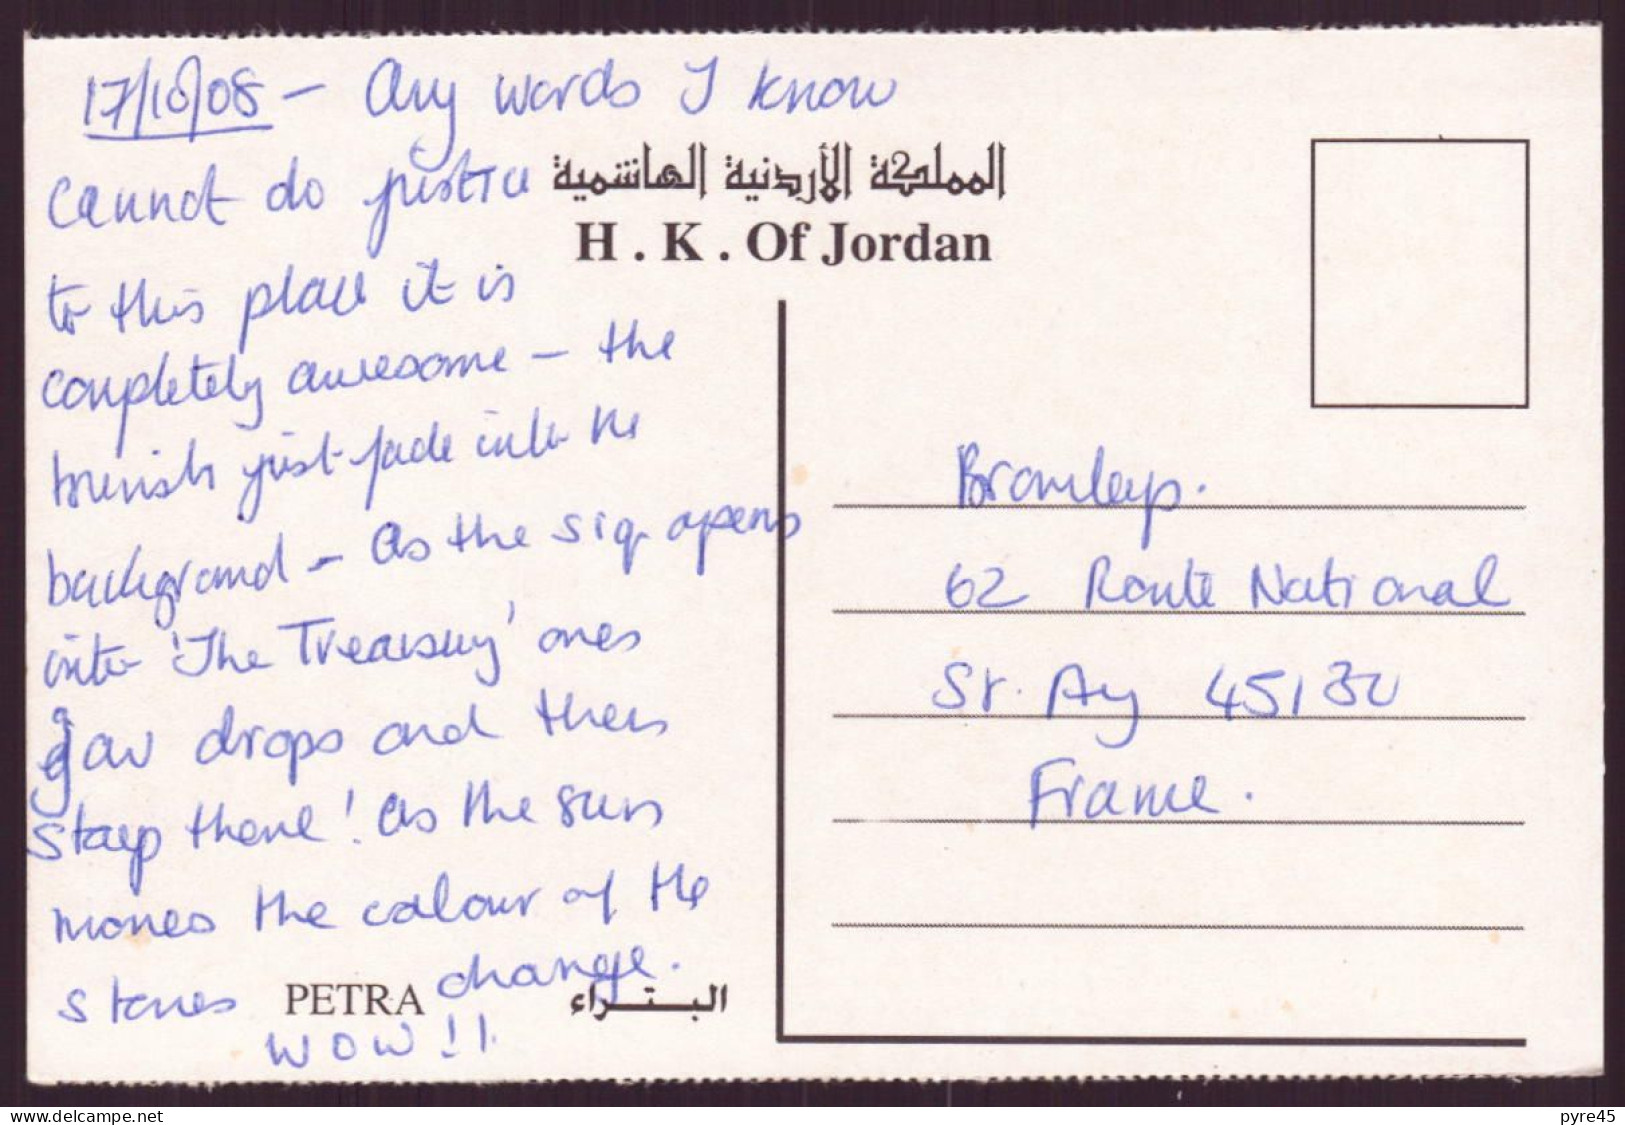 17/10/08 – Any words I know
cannot do justice
to this place it is
completely awesome – the
tourists just fade into the
background – As the siq opens
into 'The Treasury' ones
jaw drops and then
stays there! As the sun
moves the colour of the
stones change.
WOW!!
المملكة الأردنية الهاشمية
H . K . Of Jordan
PETRA
البتراء
Bromleys.
62 Route National
St. Ay 45130
France.
www.delcampe.net
pyre45